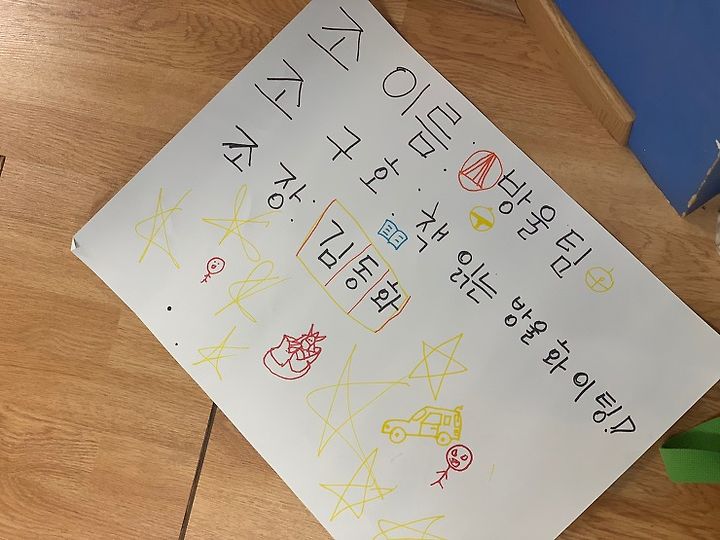 조 이름 : 방울팀
조 구호 : 책 방울 화이팅!
조장 : 김동화